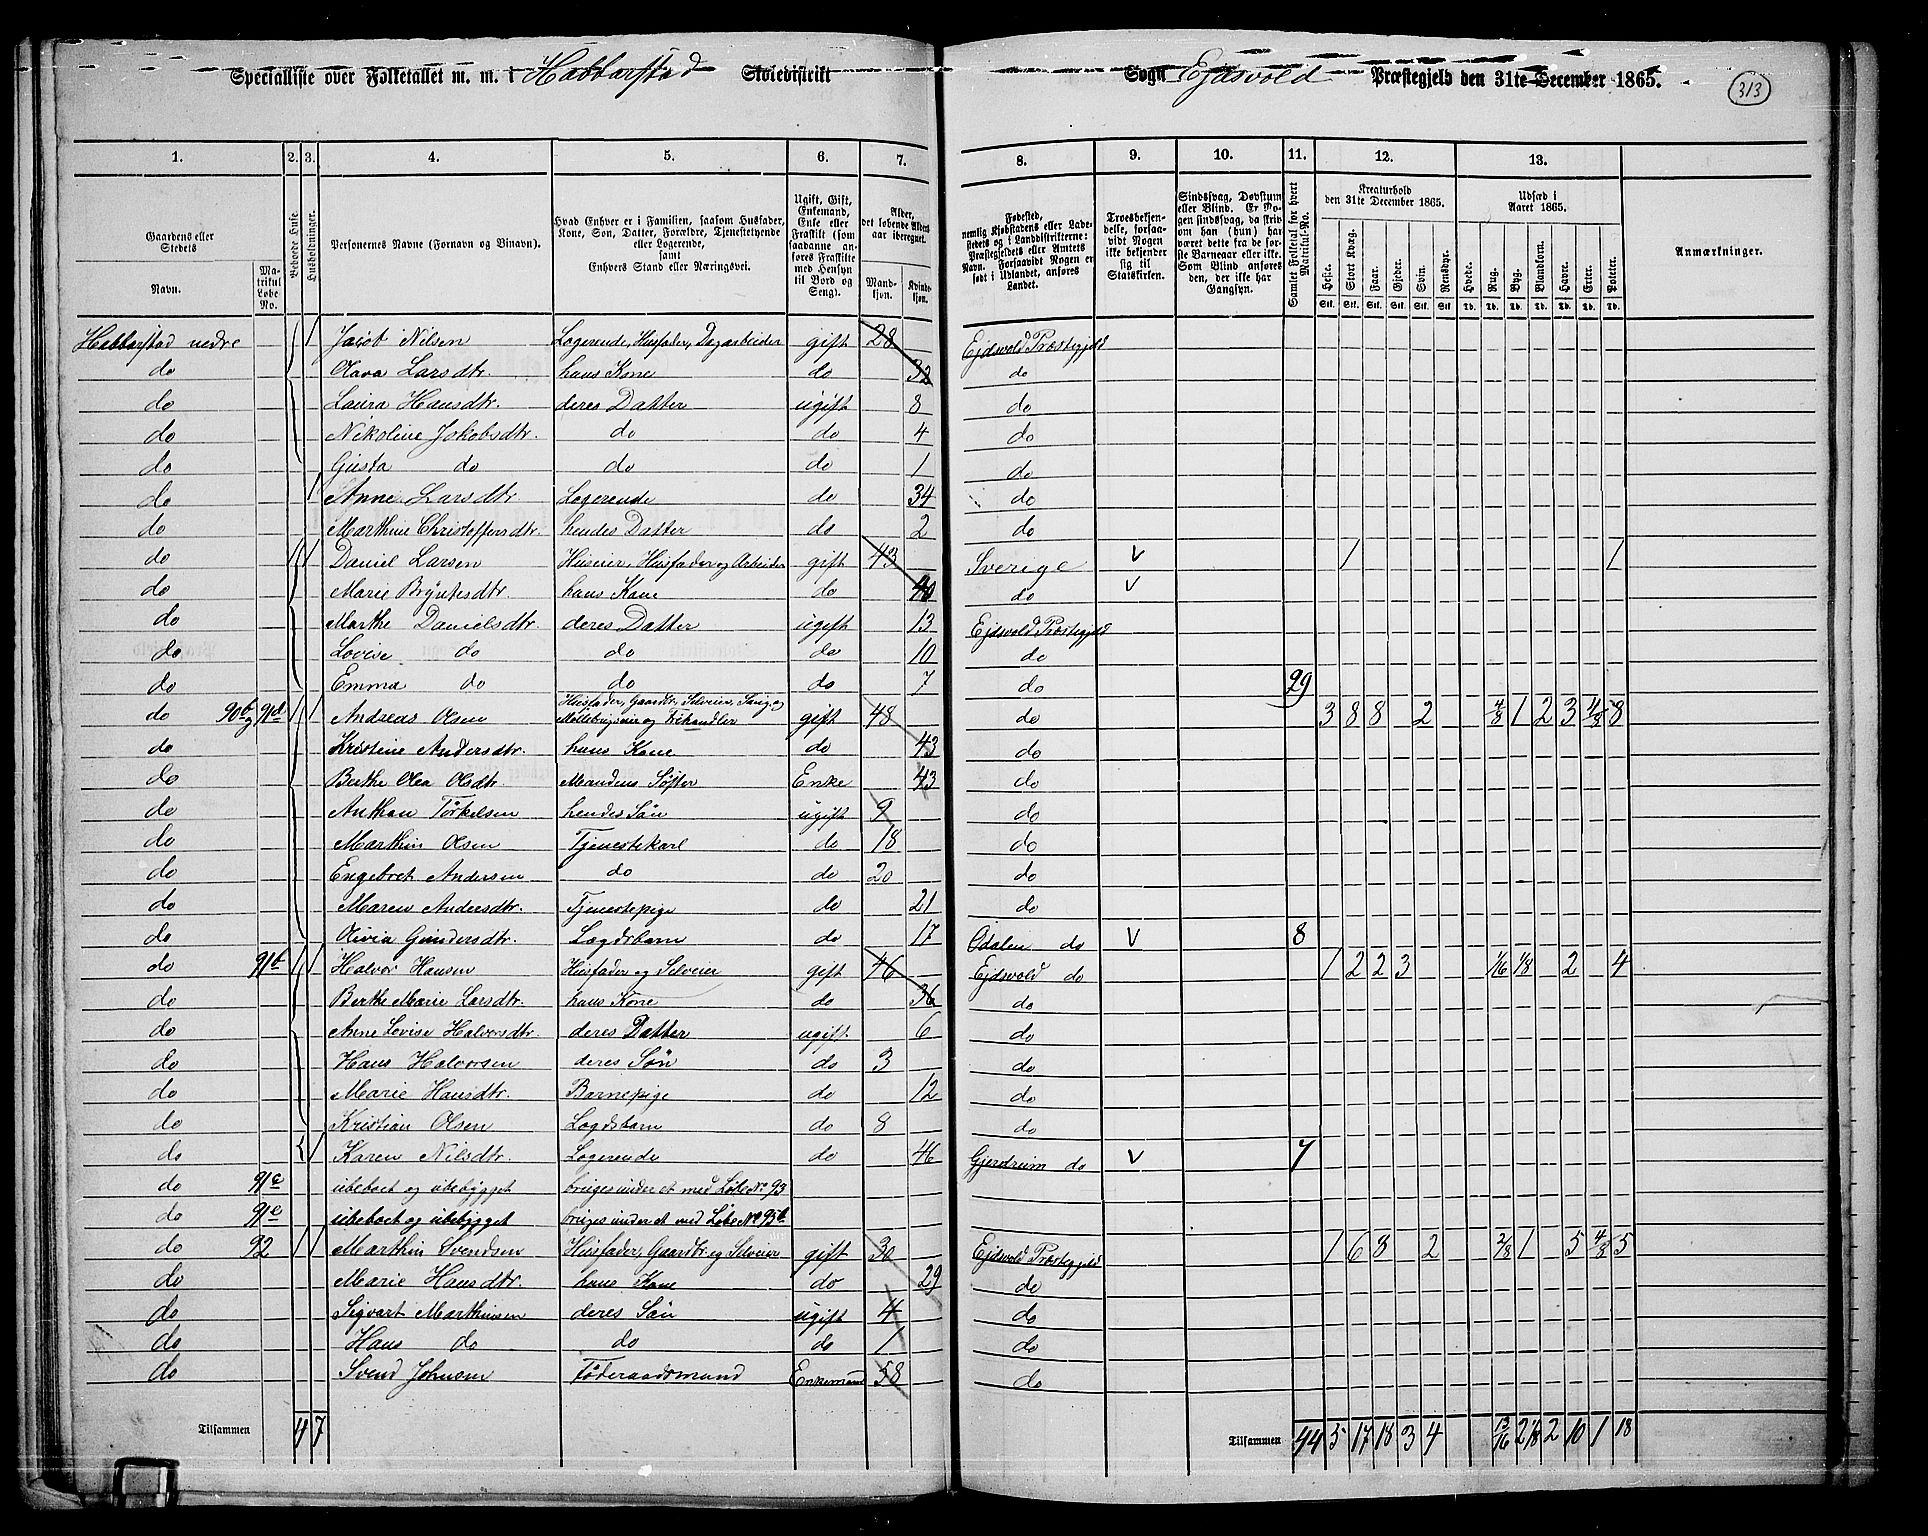 Specialliste over Folketallet m. m. i Habbarstad Skoledistrikt
Sogn Ejdsvold Præstegjeld den 31te December 1865.
313
1. 2. 3. 4. 5. 6. 7. 8. 9. 10. 11. 12. 13.
Gaardens eller Stedets
Navn.
Matrikul Løbe No.
Beboede Huse
Husholdninger.
Personernes Navne (Fornavn og Tilnavn).
Hvad Enhver er i Familien, saasom Husfader, Kone, Søn, Datter, Forældre, Tjenestetyende eller Logerende, samt Enhvers Stand eller Næringsvei.
Ugift, Gift, Enkemand, Enke eller Fraskilt (som saadanne anføres Fraskilte med Hensyn til Bord og Seng).
Alder, det løbende Alders aar iberegnet.
Mandkjøn.
Kvindekjøn.
Fødested, nemlig Kjøbstadens eller Ladestedets og i Landdistrikterne: Præstegjeldets eller Amtets Navn. Forsaavidt Nogen er født i Udlandet, anføres Landet.
Troesbekjendelse, forsaavidt Nogen ikke bekjender sig til Statskirken.
Sindssvag, Døvstum eller Blind. Er Nogen sindssvag, da skriv om han (hun) har været dette fra de første Barneaar eller ikke. Som Blind anføres den, der ikke har Gangsyn.
Samlet Folketal for hvert Matrikul-No.
Kreaturhold den 31te December 1865.
Heste. Stort Kvæg. Faar. Gjeder. Svin. Rensdyr.
Udsæd i Aaret 1865.
Hvede. Rug. Byg. Blandkorn. Havre. Erter. Poteter.
Anmærkninger.
Habbarstad nedre Jacob Nilsen Logerende, Husfader, Dagarbeider gift 28 Ejdsvold Præstegjeld
do Olava Larsdtr. hans Kone do 32 do
do Laura Hansdtr. deres Datter ugift 8 do
do Nikoline Jokobsdtr. do do 4 do
do Gusta do do do 1 do
do Anne Larsdtr. Logerende do 34 do
do Marthine Christoffersdtr. hendes Datter do 2 do
do Daniel Larsen Huseier, Husfader og Arbeider gift 43 Sverige V 1 1
do Marie Bryntesdtr. hans Kone do 40 do V
do Marthe Danielsdtr. deres Datter ugift 13 Ejdsvold Præstegjeld
do Lovise do do do 10 do
do Emma do do do 7 do 29
do 90b og 91d Andreas Olsen Husfader, Gaardbr. Selveier, Saug og Møllebrugseier og Fehandler gift 48 do 3 8 8 2 4/8 1 2 3 4/8 8
do Kristine Andersdtr. hans Kone do 43 do
do Berthe Olea Olsdtr. Mandens Søster Enke 43 do
do Anthon Torkelsen hendes Søn ugift 9 do
do Marthin Olsen Tjenestekarl do 18 do
do Engebret Andersen do do 20 do
do Maren Andersdtr. Tjenestepige do 21 do
do Olivia Gundersdtr. Lægdsbarn do 17 Odalen do V 8
do 91b Halvor Hansen Husfader og Selveier gift 46 Ejdsvold do 1 2 2 3 1/16 1/8 2 4
do Berthe Marie Larsdtr. hans Kone do 36 do
do Anne Lovise Halvorsdtr. deres Datter ugift 6 do
do Hans Halvorsen deres Søn do 3 do
do Marie Hansdtr. Barnepige do 12 do
do Kristian Olsen Lægdsbarn do 8 do
do Karen Nilsdtr. Logerende do 46 Gjerdrum do V 7
do 91c ubeboet og ubebygget bruges under et med Løbe No 93
do 91e ubeboet og ubebygget bruges under et med Løbe No 95b
do 92 Marthin Svendsen Husfader, Gaardbr. og Selveier gift 30 Ejdsvold Præstegjeld 1 6 8 2 2/8 1 5 4/8 5
do Marie Hansdtr. hans Kone do 29 do
do Sigvart Marthinsen deres Søn ugift 4 do
do Hans do do do 1 do
do Svend Johnsen Føderaadsmand Enkemand 58 do
Tilsammen 4 7
Tilsammen 44 5 17 18 3 4 13/16 2 1/8 2 10 1 18